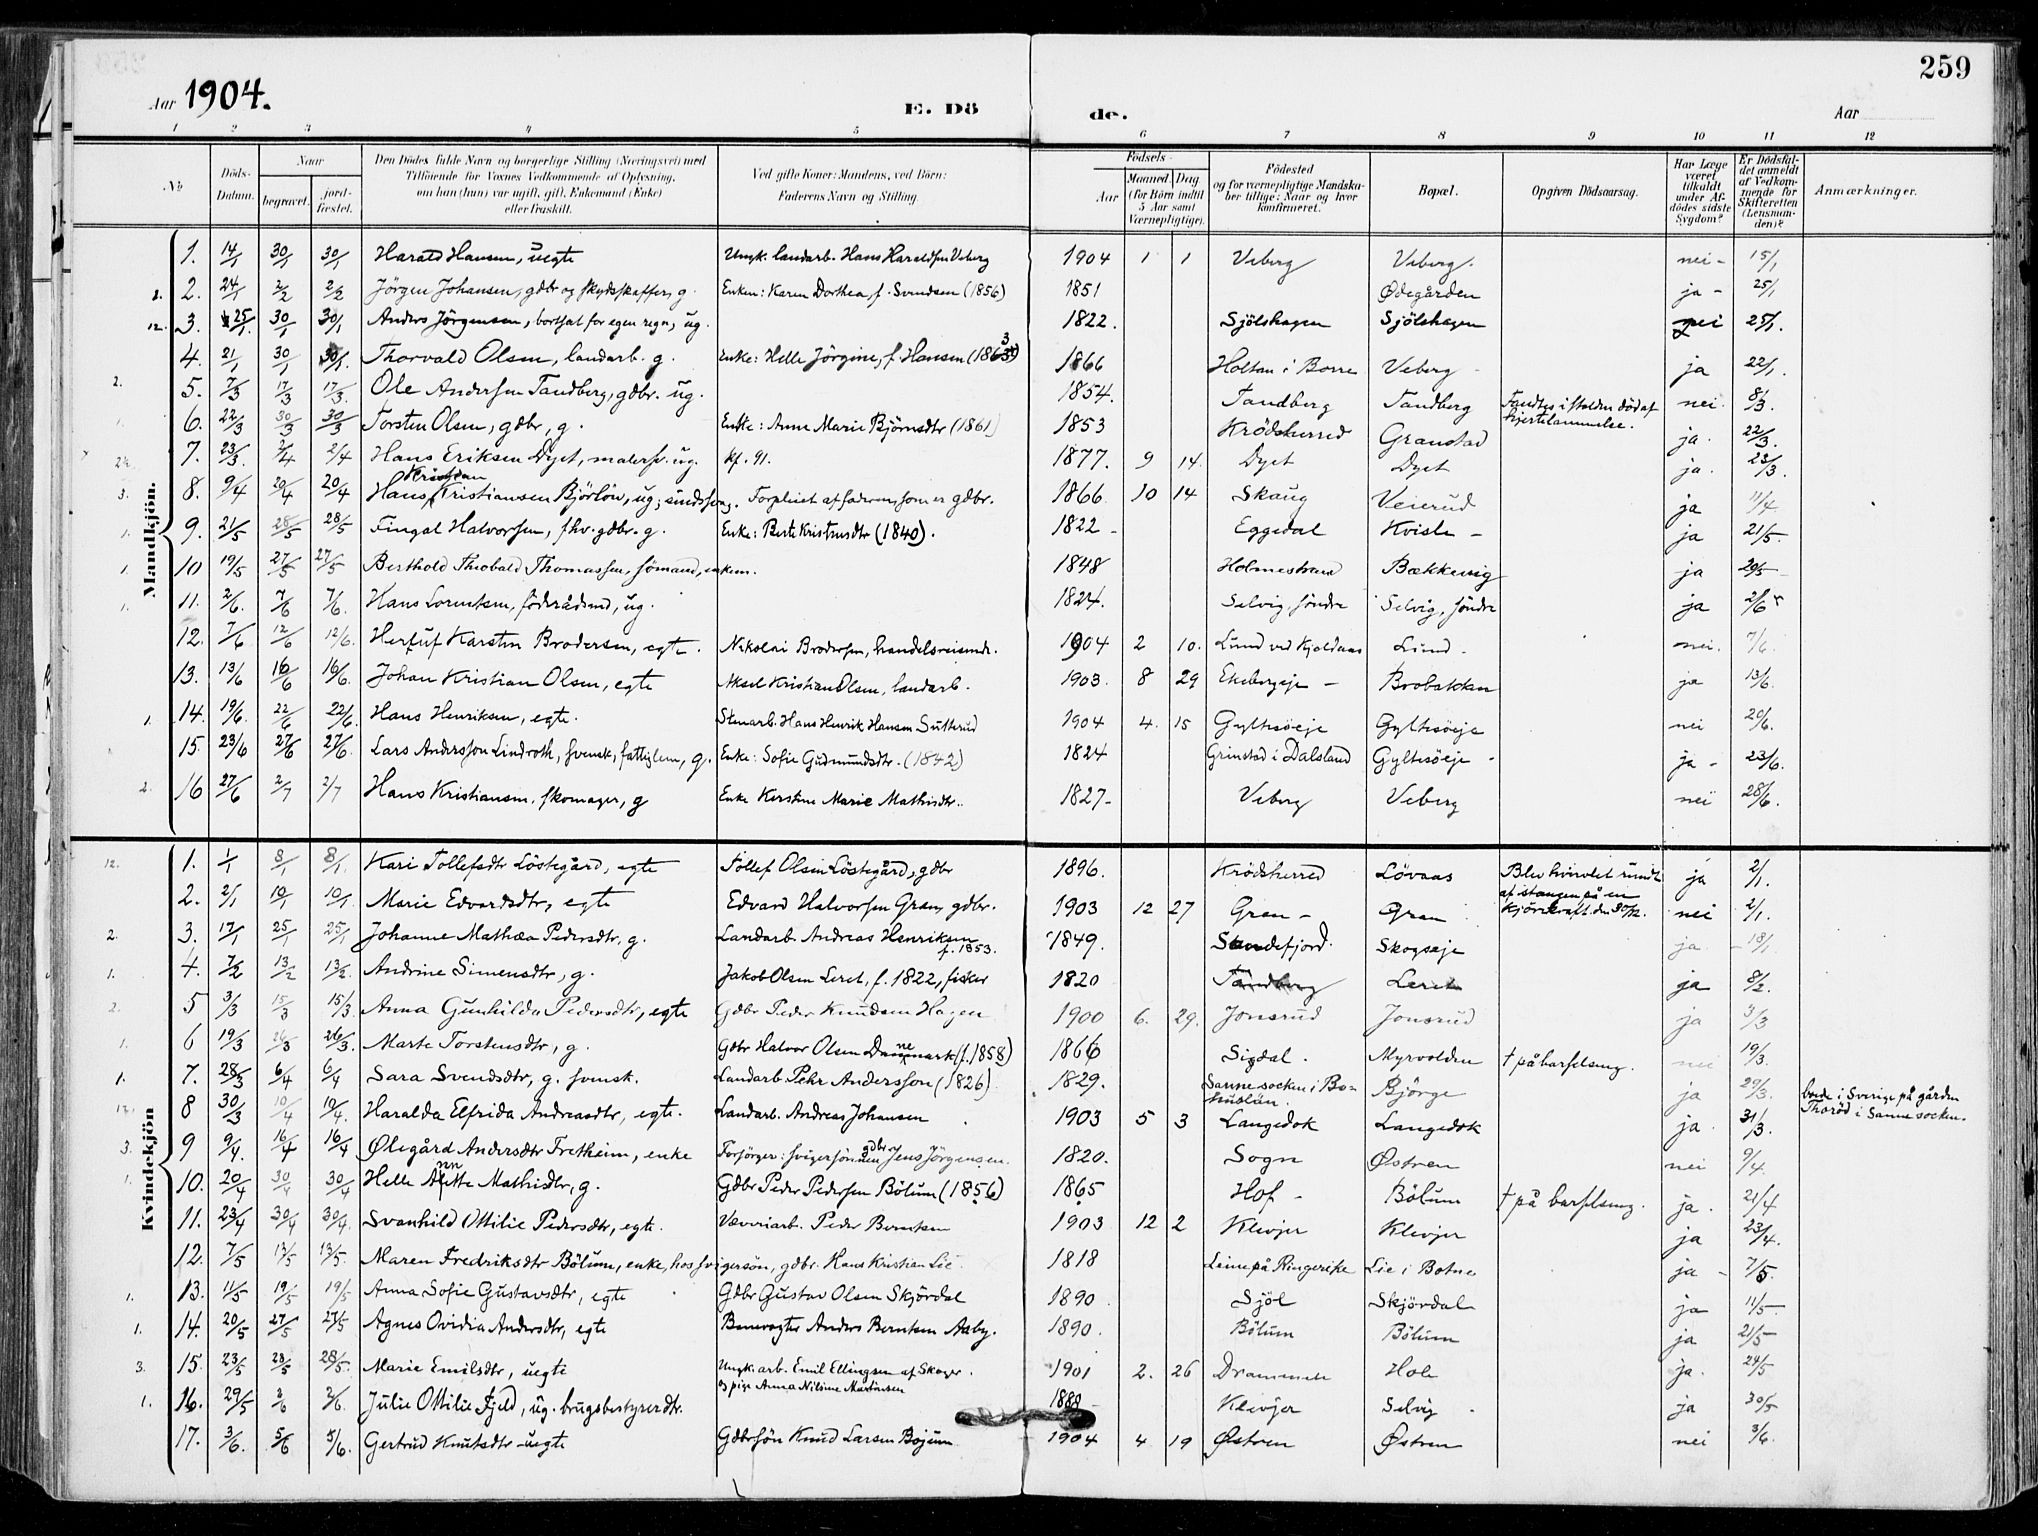 259
Aar 1904.
E. Dö de.
Aar
1 2 3 4 5 6 7 8 9 10 11 12
No
Döds-Datum.
Naar
begravet.
jordfæstet.
Den Dödes fulde Navn og borgerlige Stilling (Næringsvei) med
Tilföiende for Voxnes Vedkommende af Oplysning,
om han (hun) var ugift, gift, Enkemand (Enke)
eller fraskilt.
Ved gifte Koner: Mandens, ved Börn:
Faderens Navn og Stilling.
Födsels-
Aar
Maaned. Dag.
(for Börn indtil
5 Aar samt
Værnepligtige).
Födested
og for værnepligtige Mandskaber
tillige: Naar og hvor
konfirmeret.
Bopæl.
Opgiven Dödsaarsag.
Har Læge
været
tilkaldt
under Afdödes
sidste
Sygdom?
Er Dödsfaldet
anmeldt
af Vedkommende
for
Skifteretten
(Lensmanden)?
Anmærkninger.
Mandkjön.
1. 14/1 30/1 30/1 Harald Hansen, uegte Ungk. landarb. Hans Haraldsen Veberg 1904 1 1 Veberg Veberg. nei - 15/1
2. 24/1 2/2 2/2 Jörgen Johansen, gdbr og skydsskaffer, g. Enken: Karen Dorthea, f. Svendsen (1856) 1851 Ødegården ja - 25/1
3. 25/1 30/1 30/1 Anders Jörgensen, bortsat for egen regn, ug. 1822. Sjölshagen Sjölshagen nei 25/1.
4. 21/1 30/1 30/1 Thorvald Olsen, landarb. g. Enke: Helle Jörgine, f. Hansen 1866 Holtan i Borre Veberg ja 22/1.
5. 7/3 17/3 17/3. Ole Andersen Tandberg, gdbr. ug. 1854. Tandberg Tandberg Fandtes i stolen död af hjertelammelse. nei. 8/3.
6. 22/3 30/3 30/3 Torsten Olsen, gdbr, g. Enke: Anne Marie Björnsdtr (1861) 1853 Krödsherred Granstad ja. 22/3.
7. 23/3. 2/4 2/4 Hans Eriksen Dyet, malersv. ug. kf. 91. 1877. 9 14. Dyet Dyet ja. 23/3.
8. 9/4 20/4 20/4 Hans Kristian Kristiansen Björlöv, ug, sindssvag. Forpleiet af faderen, som er gdbr. 1866 10 14 Skaug Veierud ja 11/4
9. 21/5 28/5 28/5 Fingal Halvorsen, fhv. gdbr. g. Enke: Berte Kristensdtr (1840). 1822 - Eggedal Kvisle - ja 21/5.
10 19/5 27/5 27/5 Berthold Theobald Thomassen, sömand, enkem. 1848 Holmestrand Bækkevig ja 20/5
11. 2/6. 7/6 7/6. Hans Lorentsen, föderådsmd, ug. 1824. Selvig, söndre Selvig, söndre ja 2/6
12. 7/6 12/6 12/6. Herluf Karsten Brodersen, egte. Nikolai Brodersen, handelsreisende. 1904 2 10. Lund ved Kjeldaas Lund. nei. 7/6.
13. 13/6 16/6 16/6. Johan Kristian Olsen, egte Aksel Kristian Olsen, landarb. 1903. 8 29 Ekebergeje - Brobakken ja 13/6.
14. 19/6. 22/6 22/6. Hans Henriksen, egte. Stenarb. Hans Henrik Hansen Sutterud 1904 4. 15 Gyltesöeje Gyltesöeje nei 20/6.
15. 23/6 27/6 27/6. Lars Andersson Lindroth, svensk, fattiglem, g. Enke: Sofie Gudmundsdtr. (1842) 1824 Grinstad i Dalsland Gyltesöeje - ja - 23/6.
16 27/6 2/7 2/7 Hans Kristiansen, skomager, g Enke Kerstine Marie Mathisdtr.. 1827- Veberg Veberg nei 28/6.
Kvindekjön
1. 1/1 8/1 8/1. Kari Tollefsdtr Löstegård, egte Tollef Olsen Löstegård, gdbr 1896. Krödsherred Lövaas Blev hvirvlet rundt af stangen på en kjörekraft den 30/12. ja 2/1.
2. 2/1 10/1 10/1. Marie Edvardsdtr, egte Edvard Halvorsen Gran, gdbr. 1903 12 27 Gran - Gran nei 2/1.
3. 17/1 25/1 25/1 Johanne Mathea Pedersdtr, g. Landarb. Andreas Henriksen f. 1853. 1849. Sandefjord. Skogseje ja - 18/1
4. 7/2 13/2 13/2. Andrine Simensdtr, g. Jakob Olsen Leret, f. 1822, fisker 1820 Tandberg Leret ja 8/2.
5 3/3 15/3 15/3. Anna Gunhilda Pedersdtr, egte Gdbr Peder Knudsen Hagen 1900 6. 29. Jonsrud Jonsrud ja 3/3
6 19/3 26/3 26/3. Marte Torstensdtr, g. Gdbr Halvor Olsen Dannemark (f. 1858) 1866 Sigdal. Myrvolden † på barselseng. nei 19/3.
7. 28/3 6/4 6/4 Sara Svendsdtr, g. svensk. Landarb. Pehr Andersson (1826) 1829. Sanne socken i Bohuslän. Björge ja 29/3. boede i Sverige på gården Thoröd i Sanne socken.
8 30/3 10/4 10/4. Haralda Elfrida Andreasdtr, egte. Landarb. Andreas Johansen 1903 5 3 Langedok Langedok ja. 31/3.
9 9/4. 16/4 16/4 Ølegård Andersdtr Fretheim, enke Forsörger: svigersönnen gdbr Jens Jörgensen. 1820. Sogn Østren nei 9/4.
10. 20/4 30/4 30/4 Helle Mathisdtr, g. Gdbr Peder Pedersen Bölum (1856) 1865 Hof - Bölum † på barselseng. ja. 21/4
11. 23/4 30/4 30/4. Svanhild Ottilie Pedersdtr, egte. Væveriarb. Peder Berntsen 1903 12 2 Klevjer Klevjer ja 23/4.
12. 7/5 13/5 13/5. Maren Fredriksdtr Bölum, enke, hos svigersön, gdbr. Hans Kristian Lie 1818 Leine på Ringerike Lie i Botne ja - 7/5.
13. 11/5 19/5 19/5 Anna Sofie Gustavsdtr, egte Gdbr Gustav Olsen Skjördal 1890 Sjöl Skjördal ja 11/5
14. 20/5 27/5 27/5 Agnes Ovidia Andersdtr, egte Banevogter Anders Berntsen Aaby. 1890. Bölum Bölum ja 21/5
15. 23/5 28/5 28/5. Marie Emilsdtr, uegte Ungk. arb. Emil Ellingsen af Skoger. og pige Anna Nilsine Martinsen 1901 2. 26 Drammen Hole ja. 24/5
16. 29/5 2/6 2/6. Julie Ottilie Fjeld, ug. brugsbestyrerdtr. Klevjer Selvig ja 30/5
17. 3/6. 5/6 5/6. Gertrud Knutsdtr uegte Gdbrsön Knud Larsen Bojum 1904 4 19 Østren Østren nei 3/6.